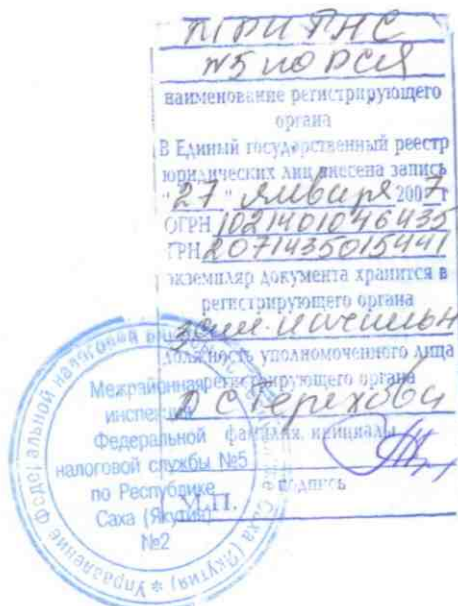 МРИ ФНС
№5 по РС(Я)
наименование регистрирующего
органа
В Единый государственный реестр
юридических лиц внесена запись
"27" января 2007 г
ОГРН 1021401046435
ГРН 2071435015441
экземпляр документа хранится в
регистрирующего органа
зам. начальн
должность уполномоченного лица
регистрирующего органа
Терехова
фамилия, инициалы
подпись
М.П.
Межрайонная
инспекция
Федеральной
налоговой службы №5
по Республике
Саха (Якутия)
№2
Управление Федеральной налоговой
Саха (Якутия) *